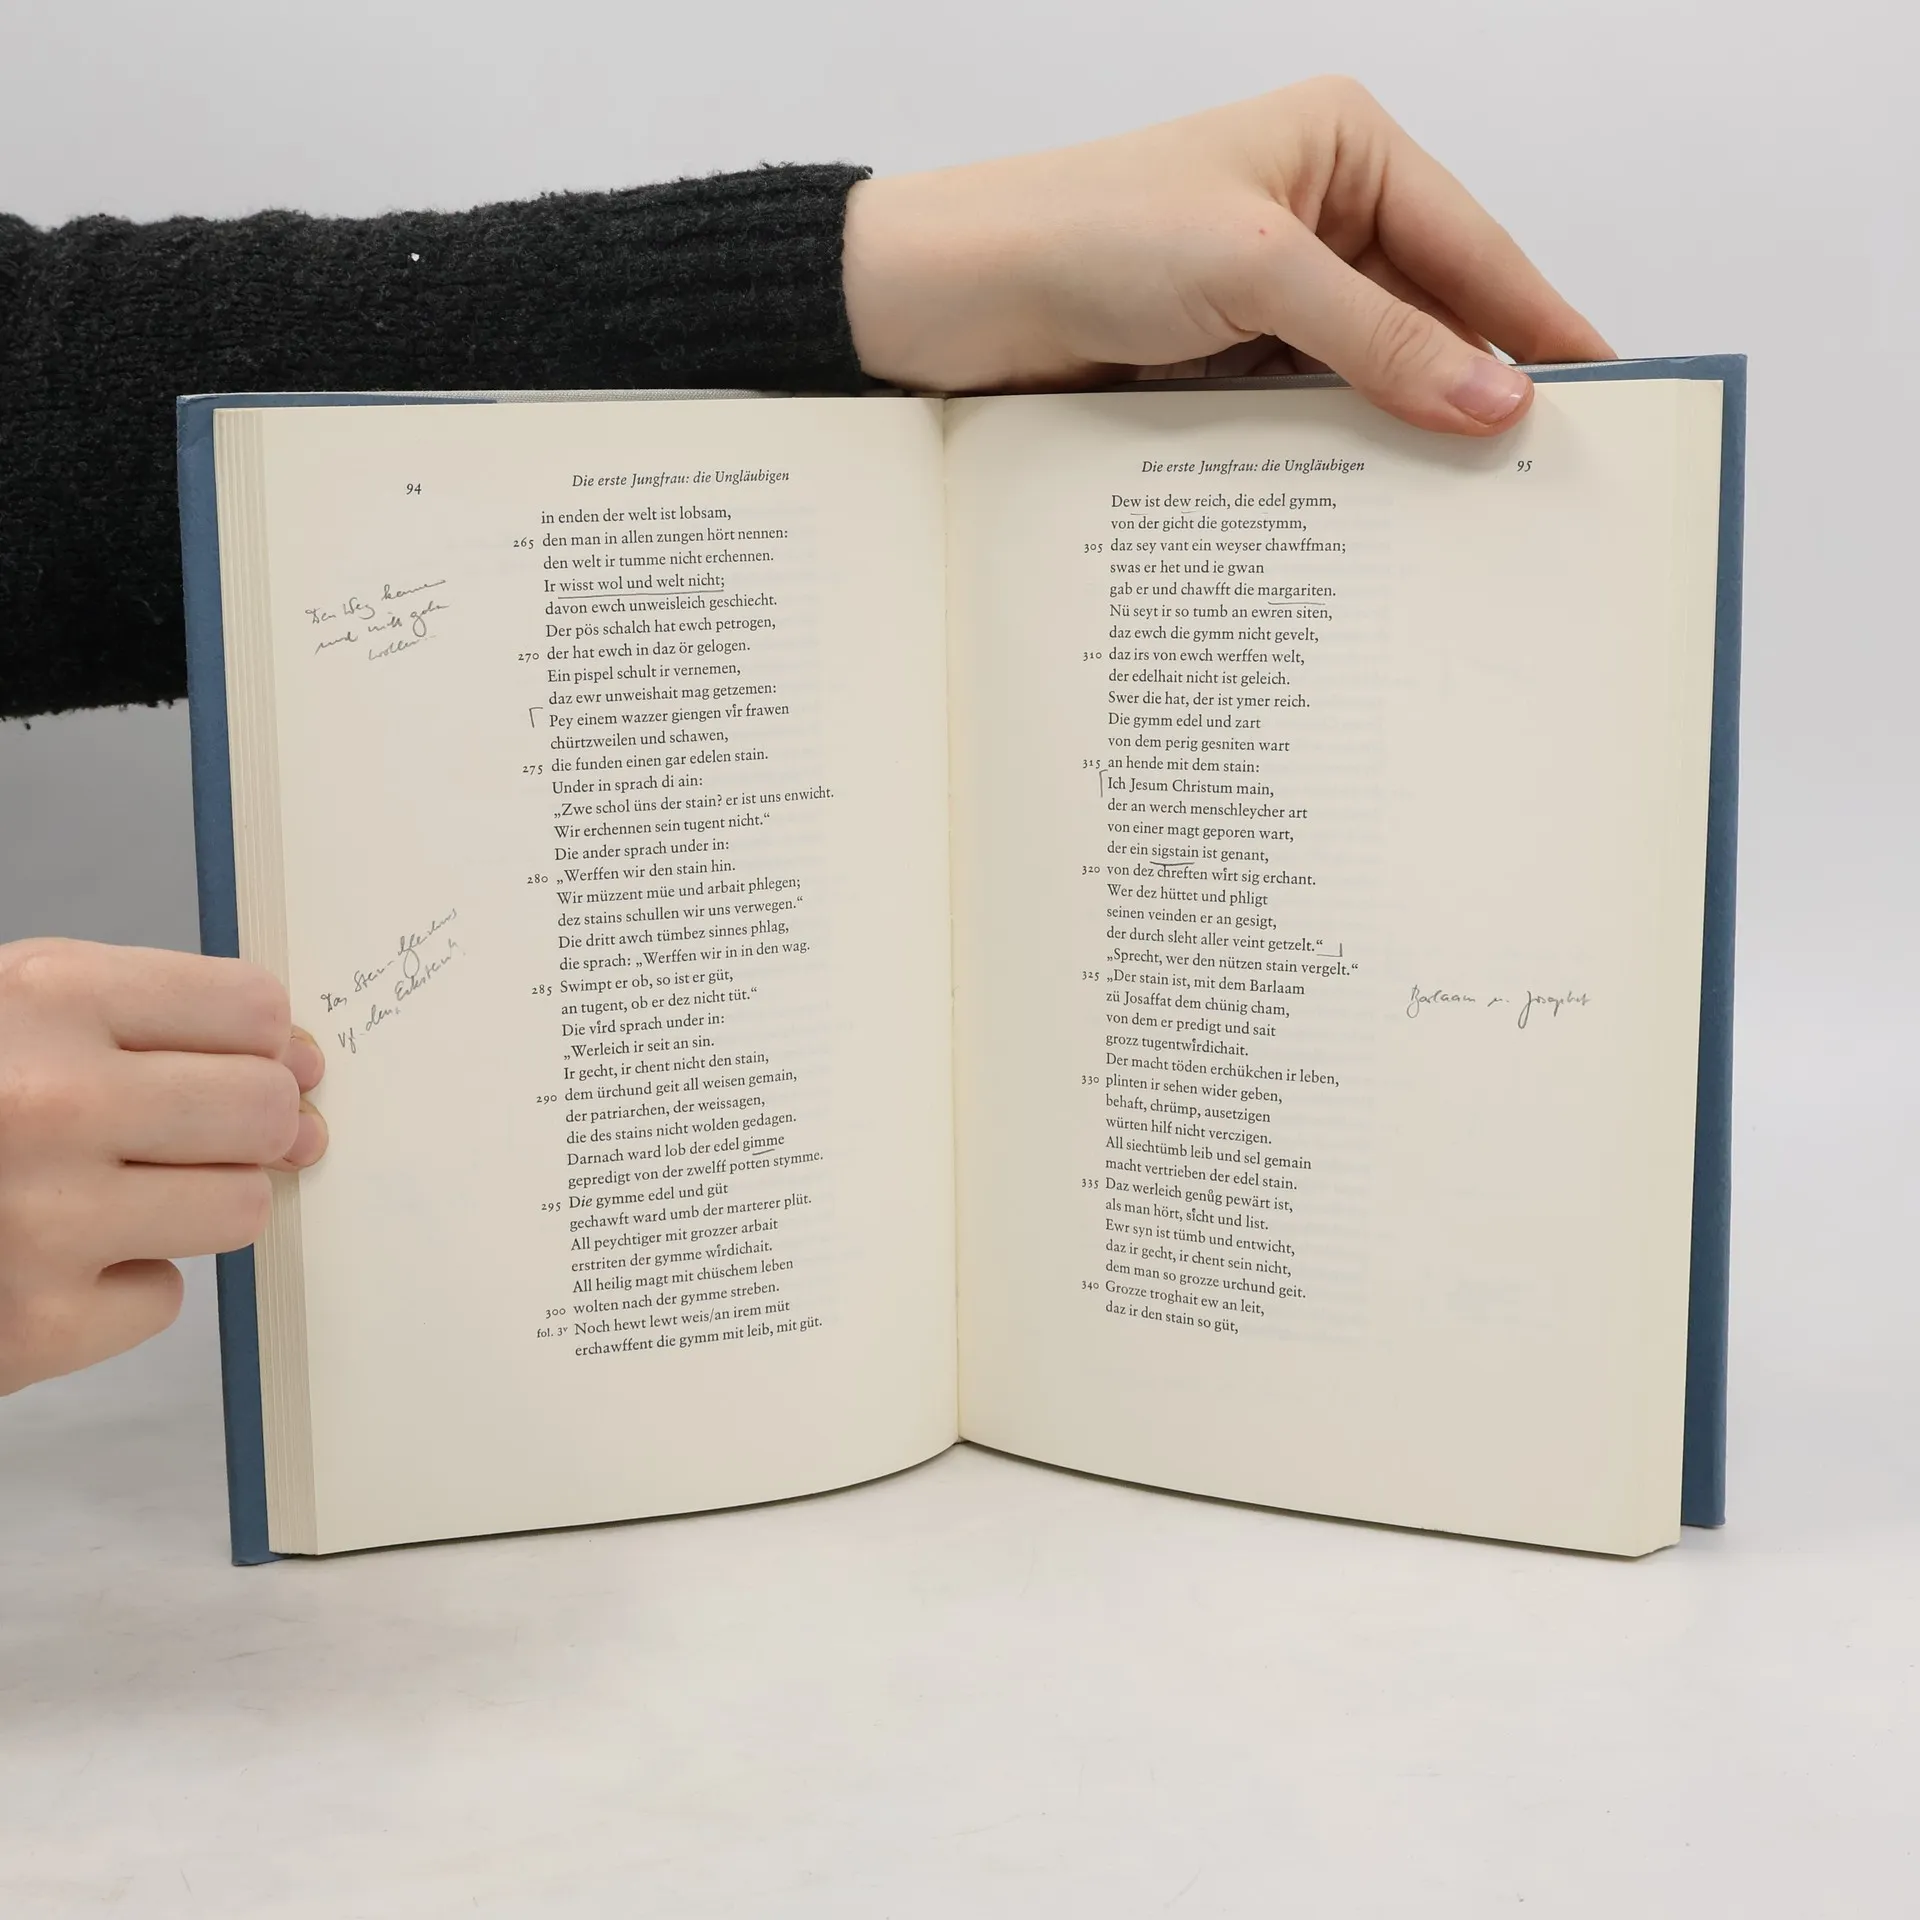 94
Die erste Jungfrau: die Ungläubigen
in enden der welt ist lobsam,
265 den man in allen zungen hört nennen:
den welt ir tumme nicht erchennen.
Ir wisst wol und welt nicht;
davon ewch unweisleich geschiecht.
Der pös schalch hat ewch petrogen,
270 der hat ewch in daz ör gelogen.
Ein pispel schult ir vernemen,
daz ewr unweishait mag getzemen:
Pey einem wazzer giengen vir frawen
chürtzweilen und schawen,
275 die funden einen gar edelen stain.
Under in sprach di ain:
„Zwe schol üns der stain? er ist uns enwicht.
Wir erchennen sein tugent nicht.“
Die ander sprach under in:
280 „Werffen wir den stain hin.
Wir müzzent müe und arbait phlegen;
dez stains schullen wir uns verwegen.“
Die dritt awch tümbez sinnes phlag,
die sprach: „Werffen wir in in den wag.
285 Swimpt er ob, so ist er güt,
an tugent, ob er dez nicht tüt.“
Die vird sprach under in:
„Werleich ir seit an sin.
Ir gecht, ir chent nicht den stain,
290 dem ürchund geit all weisen gemain,
der patriarchen, der weissagen,
die des stains nicht wolden gedagen.
Darnach ward lob der edel gimme
gepredigt von der zwelff potten stymme.
295 Die gymme edel und güt
gechawft ward umb der marterer plüt.
All peychtiger mit grozzer arbait
erstriten der gymme wirdichait.
All heilig magt mit chüschem leben
300 wolten nach der gymme streben.
fol. 3v Noch hewt lewt weis/an irem müt
erchawffent die gymm mit leib, mit güt.
Den Weg kennen
und nicht gehen
wollen...
Die erste Jungfrau: die Ungläubigen
95
Dew ist dew reich, die edel gymm,
von der gicht die gotezstymm,
305 daz sey vant ein weyser chawffman;
swas er het und ie gwan
gab er und chawfft die margariten.
Nü seyt ir so tumb an ewren siten,
daz ewch die gymm nicht gevelt,
310 daz irs von ewch werffen welt,
der edelhait nicht ist geleich.
Swer die hat, der ist ymer reich.
Die gymm edel und zart
von dem perig gesniten wart
315 an hende mit dem stain:
Ich Jesum Christum main,
der an werch menschleycher art
von einer magt geporen wart,
der ein sigstain ist genant,
320 von dez chreften wirt sig erchant.
Wer dez hüttet und phligt
seinen veinden er an gesigt,
der durch sleht aller veint getzelt.“
„Sprecht, wer den nützen stain vergelt.“
325 „Der stain ist, mit dem Barlaam
zü Josaffat dem chünig cham,
von dem er predigt und sait
grozz tugentwirdichait.
Der macht töden erchükchen ir leben,
330 plinten ir sehen wider geben,
behaft, chrümp, ausetzigen
würten hilf nicht verczigen.
All siechtümb leib und sel gemain
macht vertrieben der edel stain.
335 Daz werleich genůg pewärt ist,
als man hört, sicht und list.
Ewr syn ist tümb und entwicht,
daz ir gecht, ir chent sein nicht,
dem man so grozze urchund geit.
340 Grozze troghait ew an leit,
daz ir den stain so güt,
Barlaam u. Josaphat